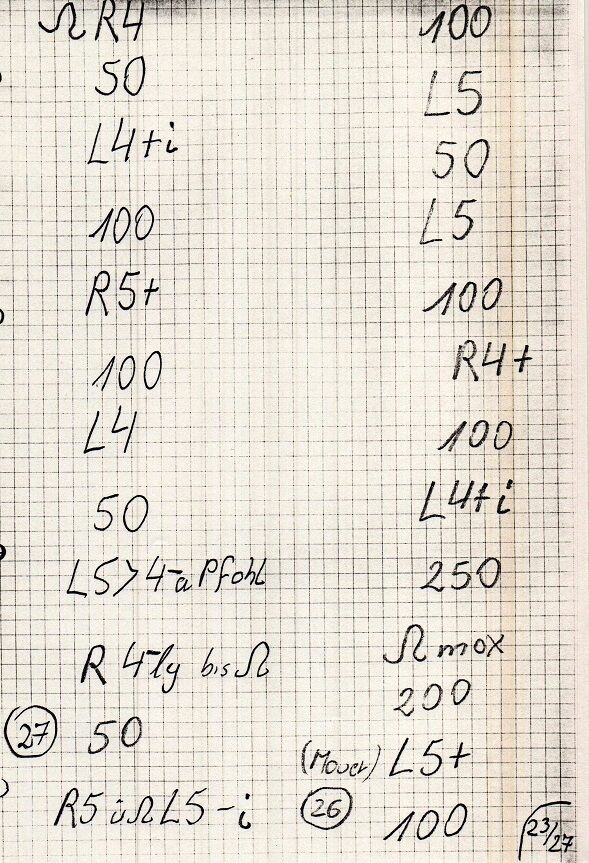 Ω R4
50
L4+i
100
R5+
100
L4
50
L5>4-a Pfahl
R 4-lg bis Ω
27 50
R5 ü Ω L5-i
100
L5
50
L5
100
R4+
100
L4+i
250
Ω max
200
(Mauer) L5+
26 100
23/27